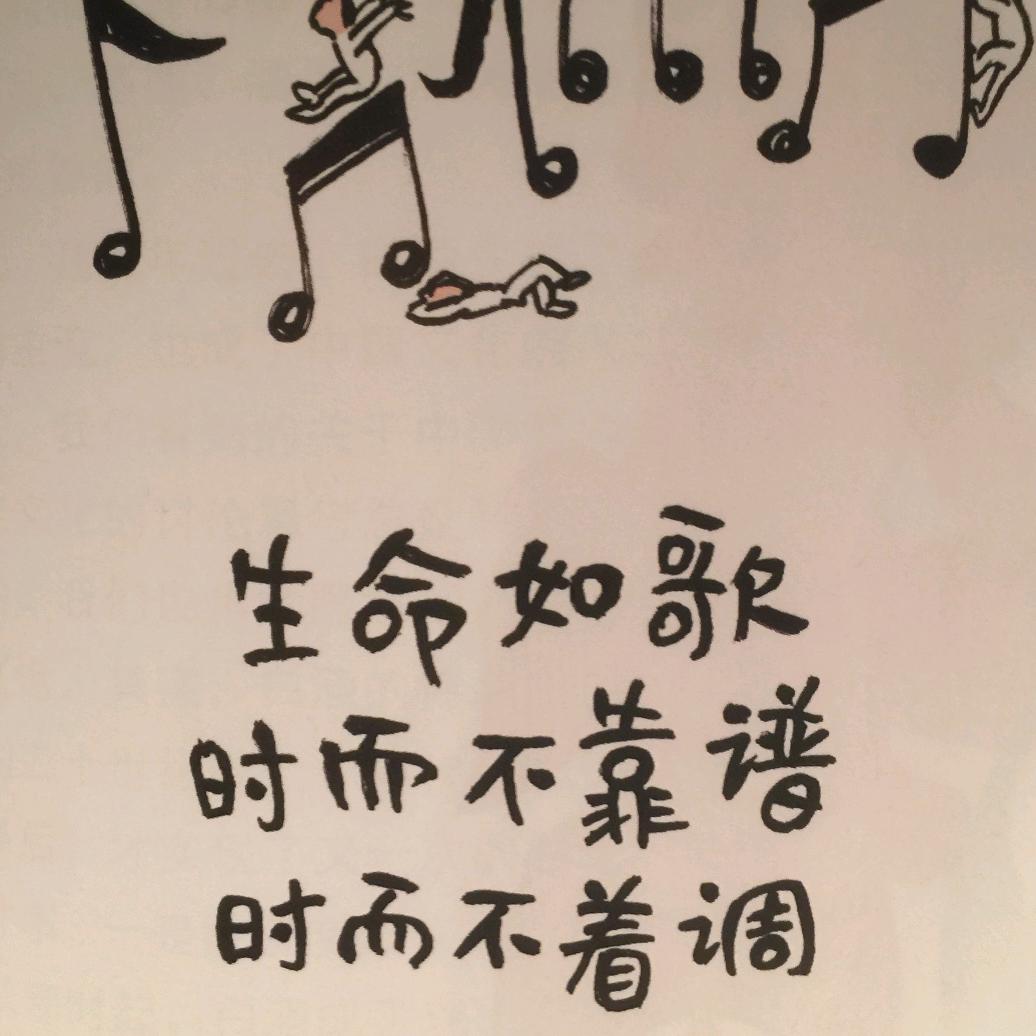 生命如歌
时而不靠谱
时而不着调